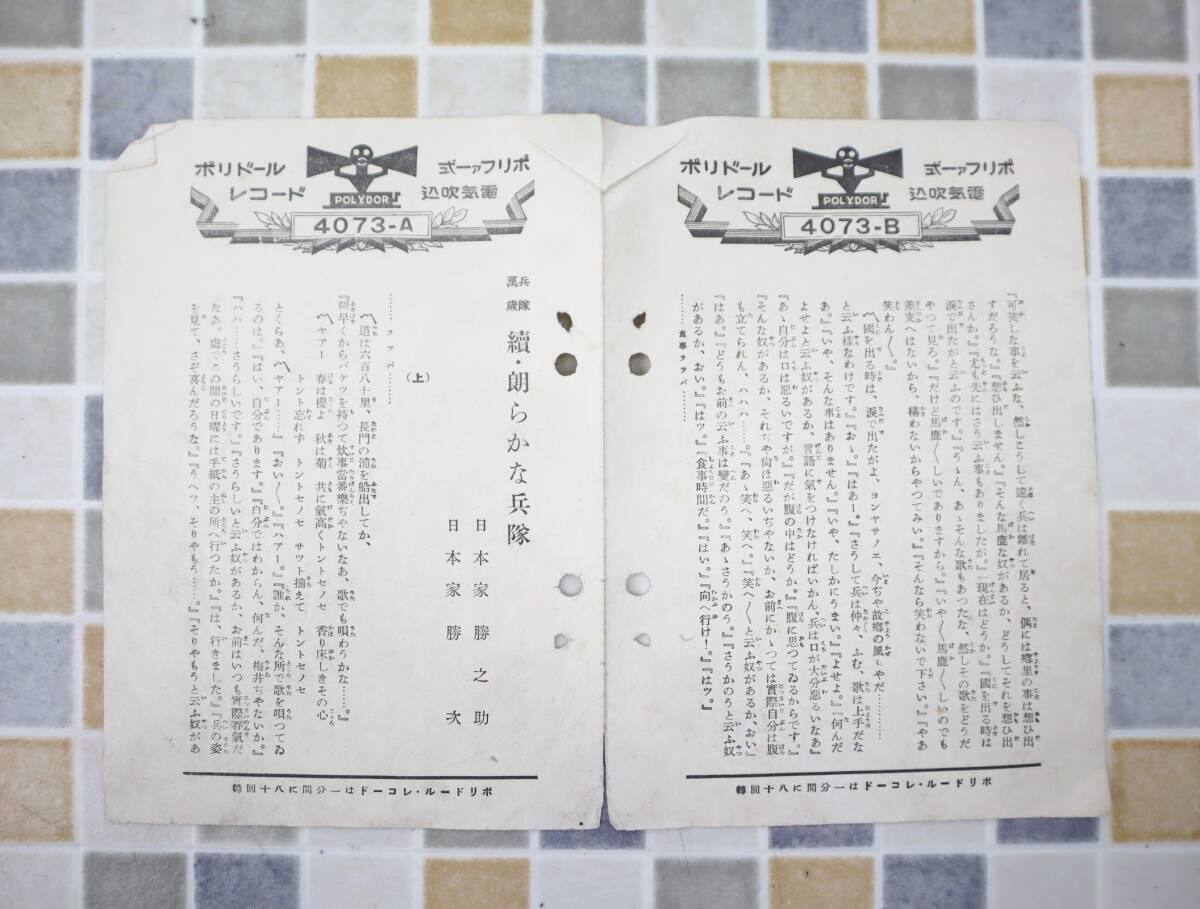 ポリドール
レコード
POLYDOR
ポリファー式
電気吹込
4073-A
兵隊萬歳
續・朗らかな兵隊
日本家勝之助
日本家勝次
(上)
………ラッパ………
〽道は六百八十里、長門の浦を船出してか、
『朝早くからバケツを持つて炊事當番樂ぢやないなあ、歌でも唄わうかな……。』
〽ヤアー 春は櫻よ 秋は菊 共に氣高くトントセノセ 香り床しきその心
トント忘れず トントセノセ サツト揃えて トントセノセ
とくらあ、〽ヤアー……』『おい〱。』『ハアー。』『誰か、そんな所で歌を唄つてゐ
るのは。』『はい、自分であります。』『自分ではわからん、何んだ、梅井ぢやないか。』
『ハハ……さうらしいです。』『さうらしいと云ふ奴があるか、お前はいつも實際呑氣だ
なあ。處でこの間の日曜には手紙の主の所へ行つたか。』『は、行きました。』『兵の姿
を見て、さぞ喜んだろうな。』『うヘッ、そりやもう……。』『そりやもうと云ふ奴があ
ポリドール・レコードは一分間に八十回轉
ポリドール
レコード
POLYDOR
ポリファー式
電気吹込
4073-B
『可笑しな事を云ふな、然しこうして遠く兵は離れて居ると、偶には郷里の事は想ひ出
すだろうな。』『想ひ出しません。』『そんな馬鹿な奴があるか、どうしてそれを想ひ出
さんか。』『尤も先にはさう云ふ事もありましたが。』『現在はどうか。』『國を出る時は
涙で出たがと云ふのです。』『うゝん、あゝそんな歌もあつたな、然しその歌をどうだ
やつて見ろ。』『だけど馬鹿〱しいでありますから。』『いや〱馬鹿〱しいのでも
差支へはないから、構わないからやつてみい。』『そんなら笑わないで下さい。』『やあ
笑わん〱。』
〽國を出る時は、涙で出たがよ、ヨンヤサノエ、今ぢや故郷の風もやだ…………
と云ふ樣なわけです。』『おゝ。』『はあー。』『さうして兵は仲々、ふむ、歌は上手だな
あ。』『いや、そんな事はありません。』『いや、たしかにうまい。』『よせよ。』『何んだ
よせよと云ふ奴があるか、言語に氣をつけなければいかん、兵は口が大分惡るいなあ』
『あゝ自分は口は惡るいですが。』『だが腹の中はどうか。』『腹に思つてゐるからです。』
『そんな奴があるか、それぢや尙ほ惡るいぢやないか、お前にかゝつては實際自分は腹
も立てられん、ハハハ……。』『あゝ笑へ、笑へ。』『笑へ〱と云ふ奴があるか、おい』
『はあ。』『どうもお前の云ふ事は變だのう。』『あゝさうかのう。』『さうかのうと云ふ奴
があるか、おい。』『はッ。』『食事時間だ。』『はい。』『向へ行け！。』『はッ。』
………食事ラッパ………
ポリドール・レコードは一分間に八十回轉